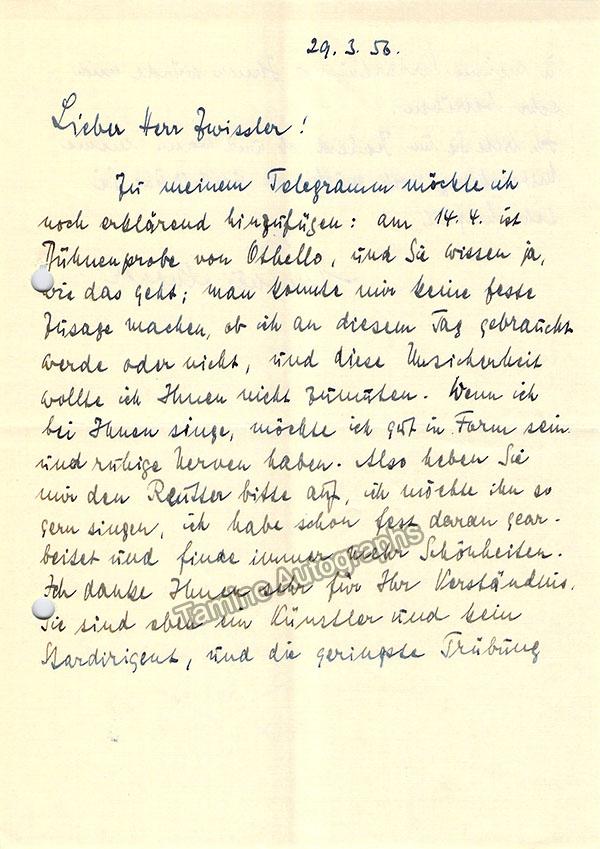 29. 3. 56.
Lieber Herr Zwissler!
Zu meinem Telegramm möchte ich
noch erklärend hinzufügen: am 14. 4. ist
Bühnenprobe von Othello, und Sie wissen ja,
wie das geht; man konnte mir keine feste
Zusage machen, ob ich an diesem Tag gebraucht
werde oder nicht, und diese Unsicherheit
wollte ich Ihnen nicht zumuten. Wenn ich
bei Ihnen singe, möchte ich gut in Form sein
und ruhige Nerven haben. Also heben Sie
mir den Reutter bitte auf, ich möchte ihn so
gern singen, ich habe schon fest daran gear-
beitet und finde immer mehr Schönheiten.
Ich danke Ihnen sehr für Ihr Verständnis.
Sie sind eben ein Künstler und kein
Stardirigent, und die geringste Trübung
Tamino Autographs